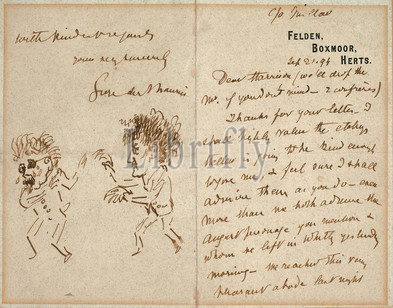 with kind regards
yours very sincerely
c/o Millar
FELDEN,
BOXMOOR,
HERTS.
Sep 21. 94
Dear Harrison (we'll drop the
Mr. if you don't mind — 2 confrères)
Thanks for your letter — I
shall highly value the etchings
you be kind enough
me & feel sure I shall
admire them as you do —
more than we both admire the
august personage you mention &
whom we left in Whitby yesterday
morning — We reached this very
pleasant abode last night
Librifly